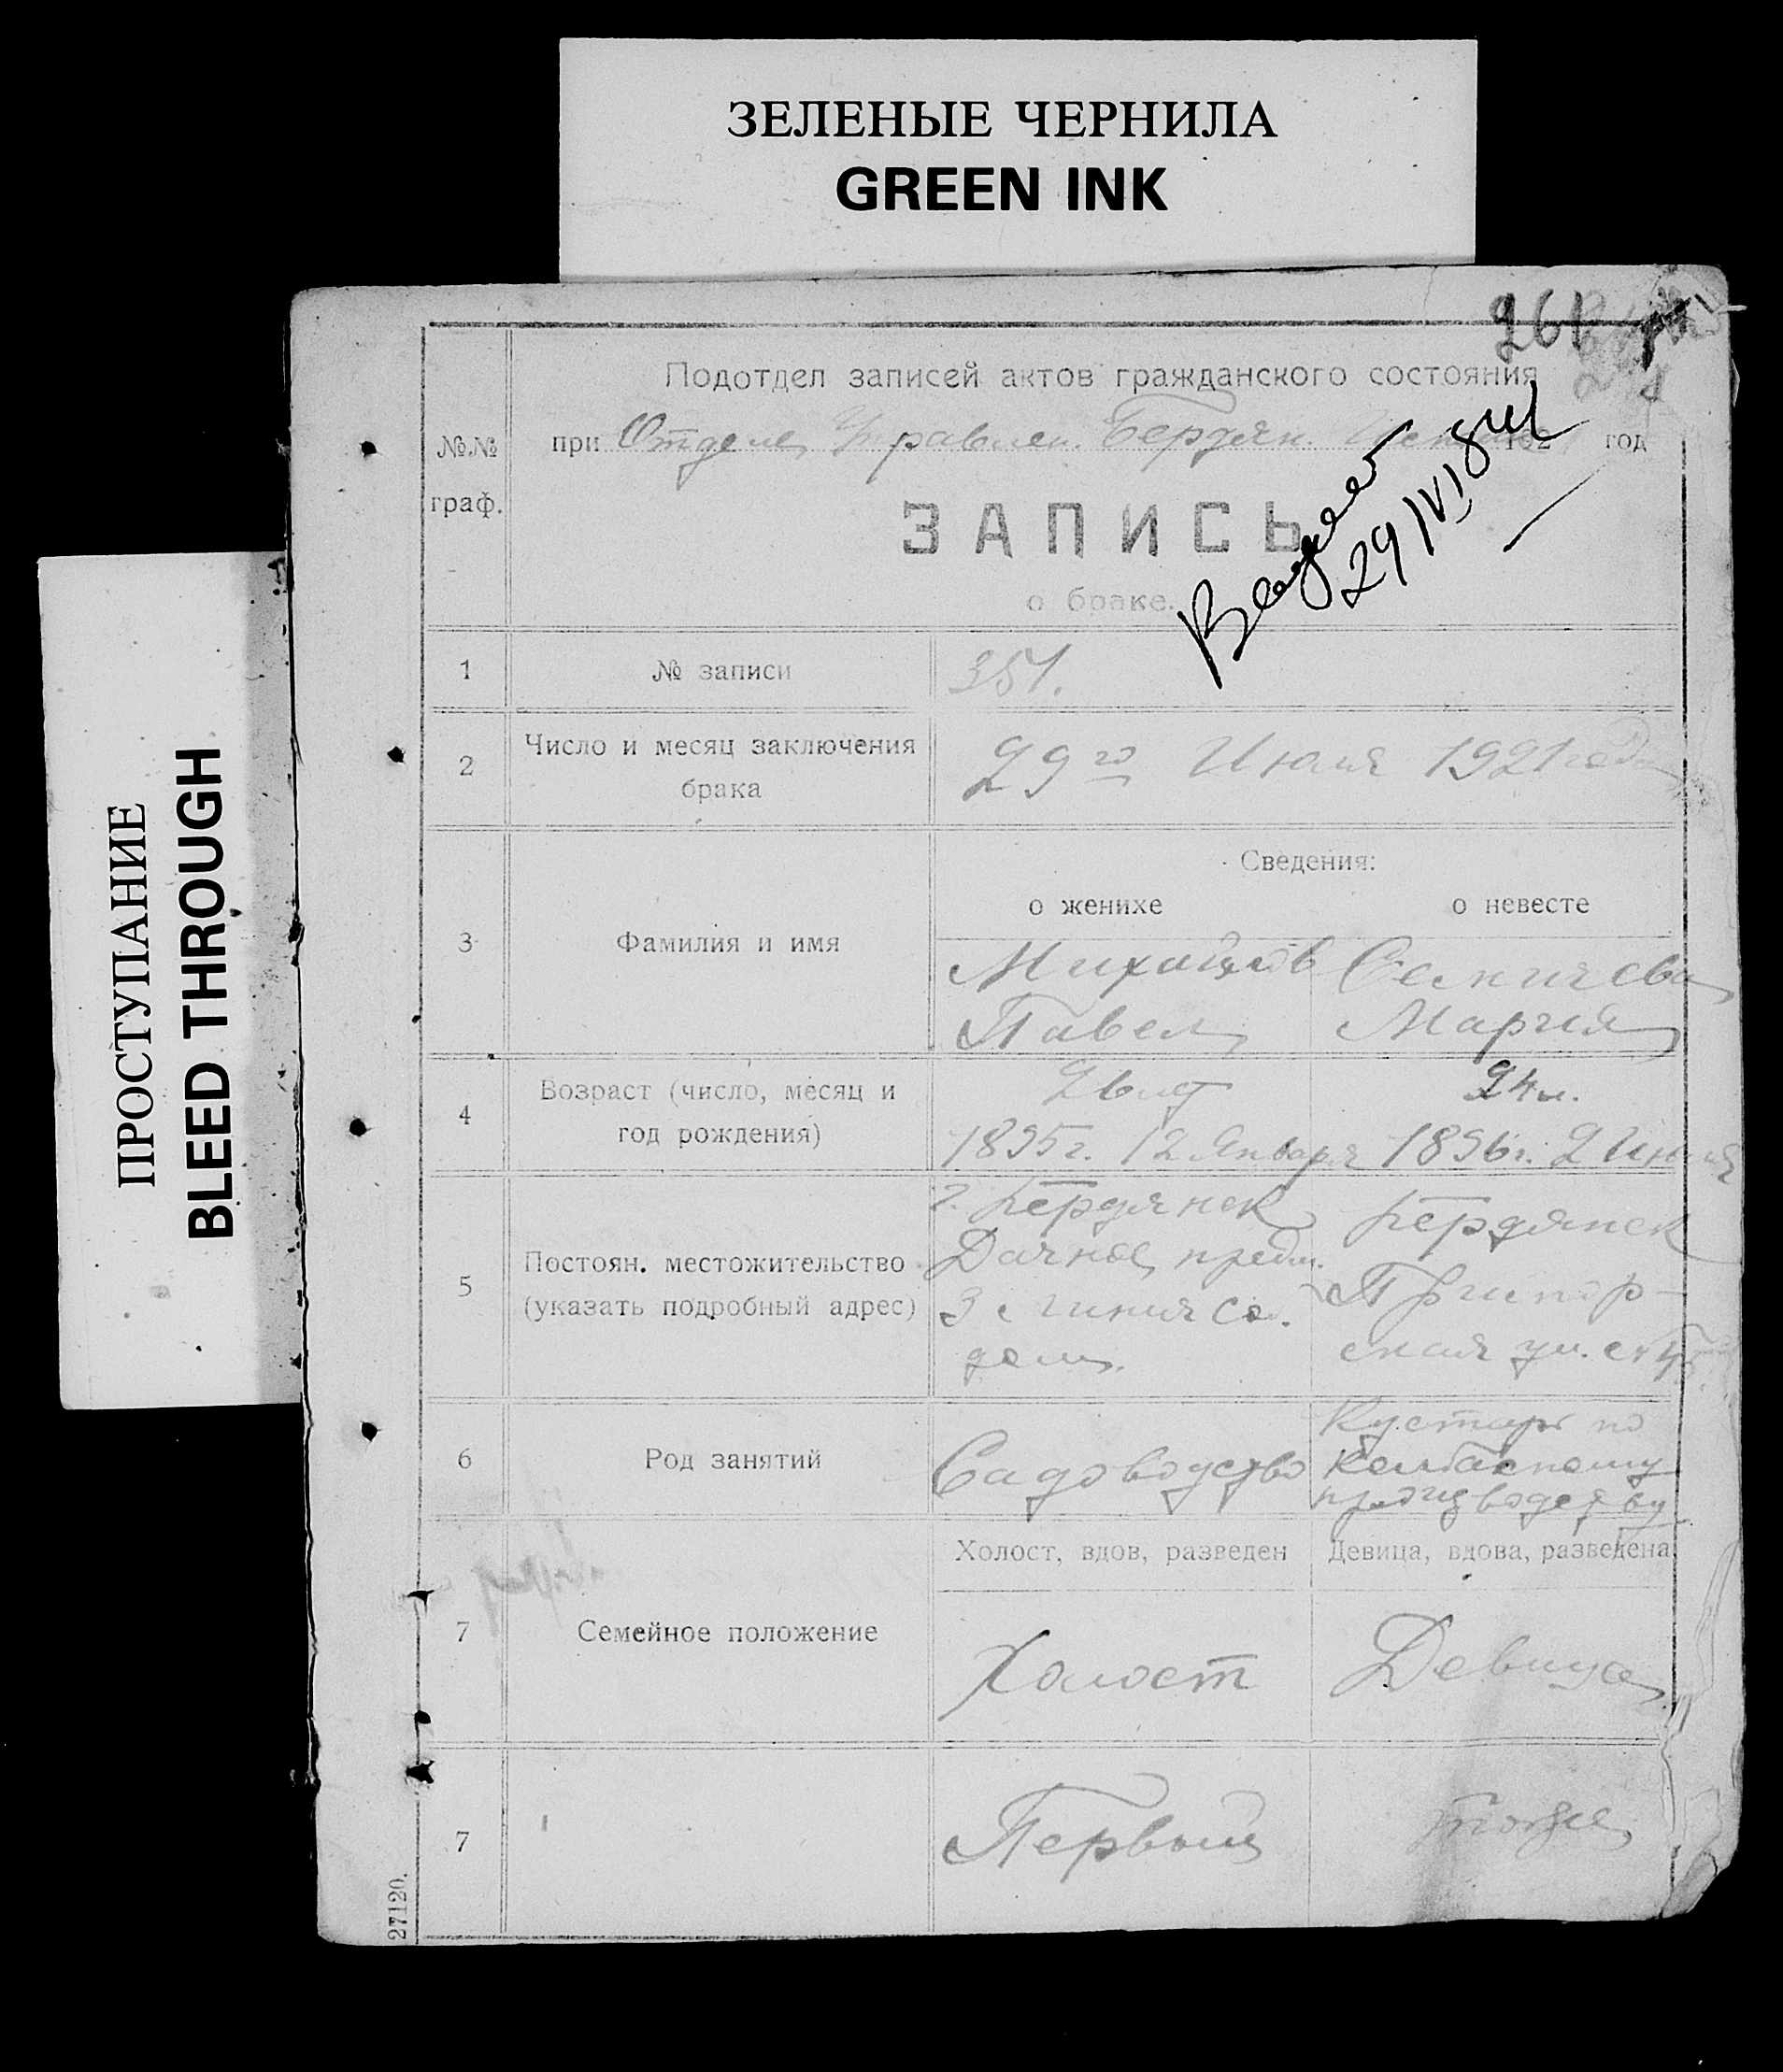 ЗЕЛЕНЫЕ ЧЕРНИЛА
GREEN INK
ПРОСТУПАНИЕ
BLEED THROUGH
261
Подотдел записей актов гражданского состояния
при Отделе Управлен. Бердян. 192 год
№№
граф.
ЗАПИСЬ
о браке.
29/VI
1 № записи 351.
2 Число и месяц заключения
брака
29го Июля 1921 года
Сведения:
о женихе о невесте
3 Фамилия и имя
Михайлов
Павел
Мария
4 Возраст (число, месяц и
год рождения)
26 лет 24 л.
1895 г. 12 Января 1896 г. 2
5 Постоян. местожительство
(указать подробный адрес)
г. Бердянск
Дачное предм.
3 линия со.
дом.
Бердянск
Примор-
ская ул.
6 Род занятий
Садоводство
Кустарь по
колбасному
производству
Холост, вдов, разведен Девица, вдова, разведена
7 Семейное положение
Холост Девица
7
Первый тоже
27120.